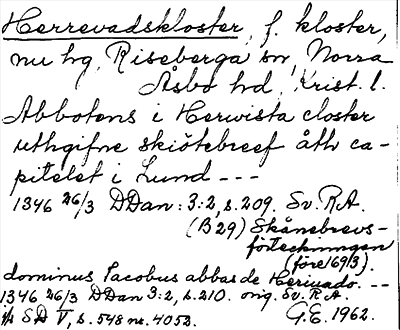 Herrevadskloster, f. kloster,
nu hg, Riseberga sn, Norra
Åsbo hd, Krist. l.
Abbotens i Herivista closter
uthgifne skiötebreef åth ca-
pitelet i Lund ---
1346 26/3 DDan: 3:2, s. 209. Sv. R.A.
(B 29) Skånebrevs-
förteckningen
(före 1693).
dominus Jacobus abbas de Herivado. --
1346 26/3 DDan 3:2, s. 210. orig. Sv. R.A.
SD V, s. 548 nr. 4052. G.E. 1962.